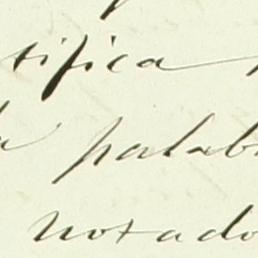 tifica
a palab
notado